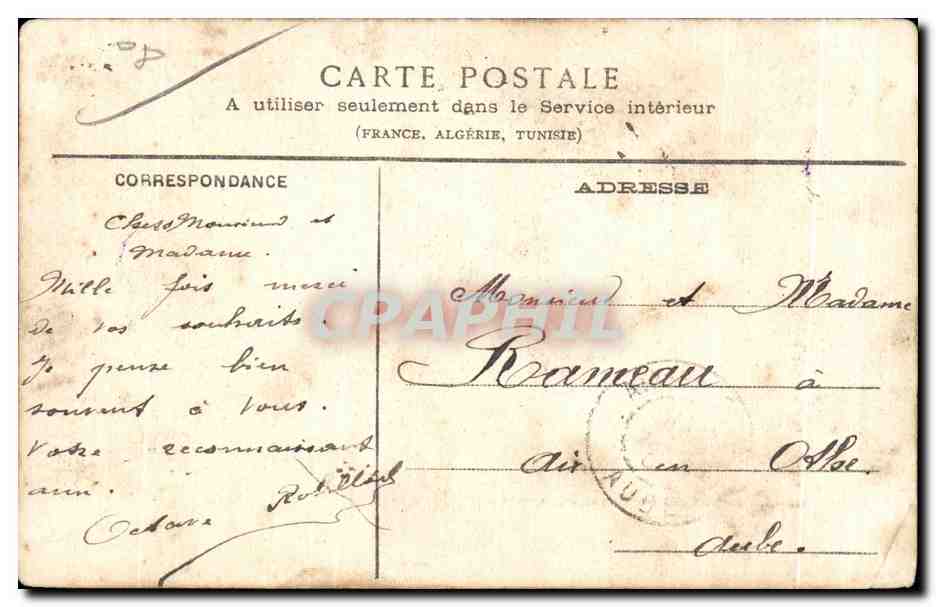 CARTE POSTALE
A utiliser seulement dans le Service intérieur
(FRANCE, ALGÉRIE, TUNISIE)
CORRESPONDANCE
Chers Monsieur et
Madame.
Mille fois merci
de vos souhaits.
Je pense bien
souvent à vous.
Votre reconnaissant
ami.
Octave
ADRESSE
Monsieur et Madame
Rameau à
Aix en Othe
Aube.
AUBE
CPAPHIL